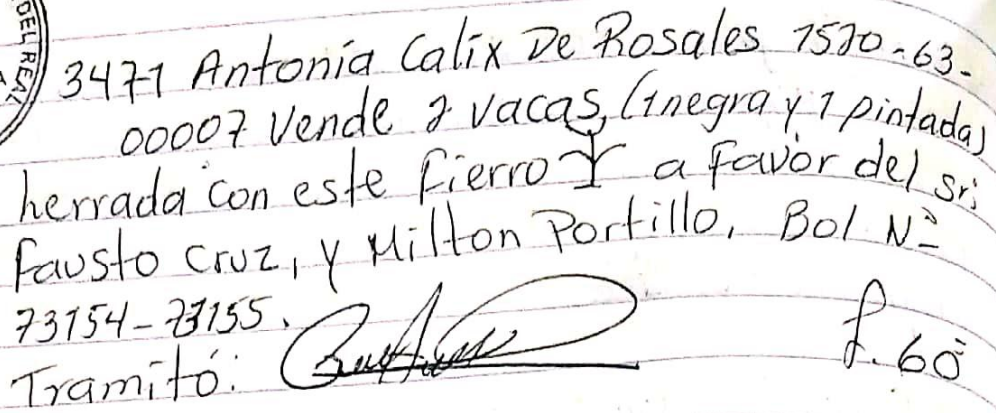 DEL REAL
3471 Antonia Calix De Rosales 1520-63-
00007 Vende 2 vacas, (1negra y 1 pintada)
herrada con este fierro a favor del sr;
Fausto Cruz, y Milton Portillo, Bol Nº
73154-73155.
Tramitó:
L. 60